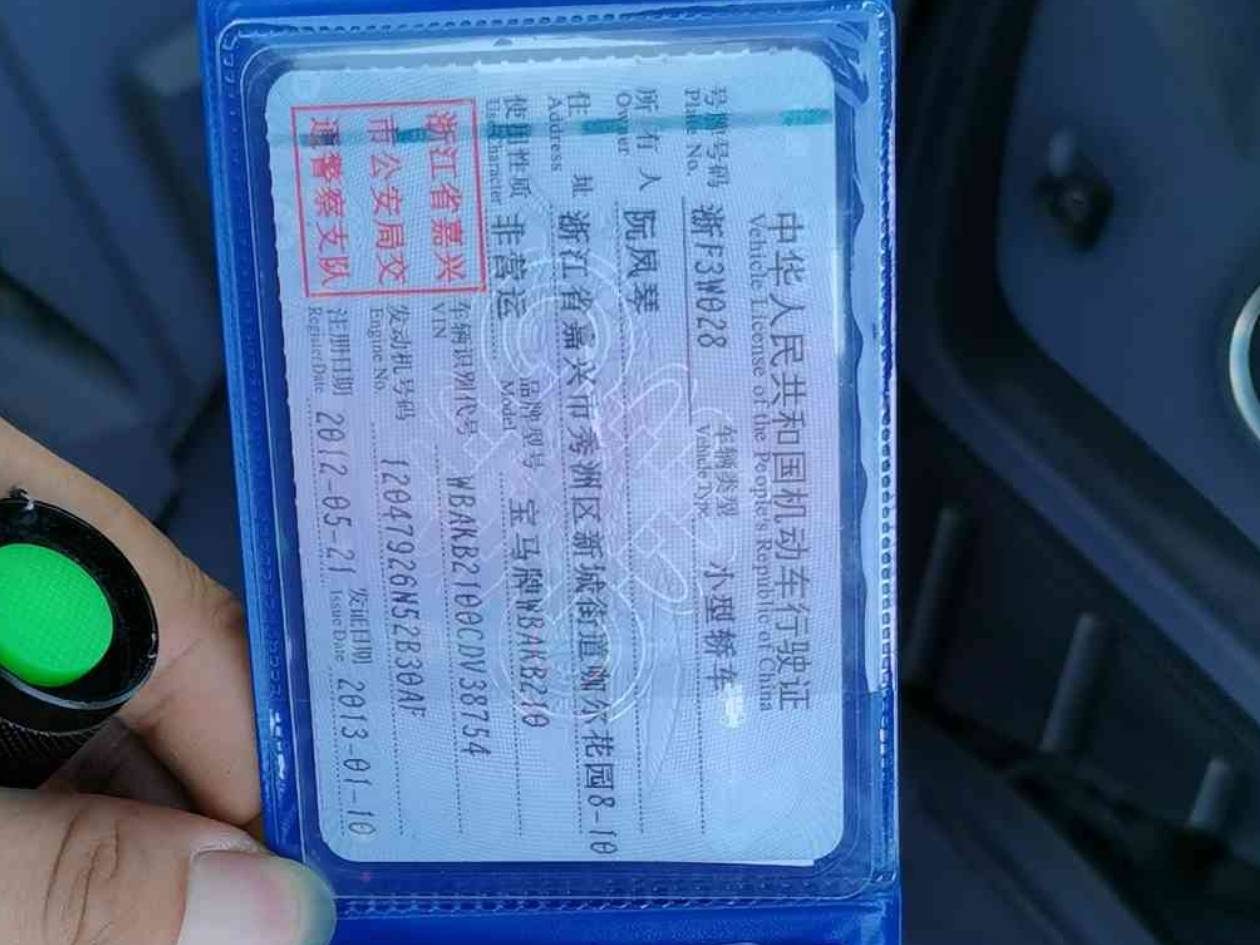 中华人民共和国机动车行驶证
Vehicle License of the People's Republic of China
号牌号码 浙F3W028 车辆类型 小型轿车
Plate No. Vehicle Type
所有人 阮凤琴
Owner
住址 浙江省嘉兴市秀洲区新城街道咖尔花园8-10
Address
使用性质 非营运 品牌型号 宝马牌WBAKB210
Use Character Model
浙江省嘉兴
市公安局交
通警察支队
车辆识别代号 WBAKB2100CDV38754
VIN
发动机号码 12047926N52B30AF
Engine No.
注册日期 2012-05-21 发证日期 2013-01-10
Register Date Issue Date